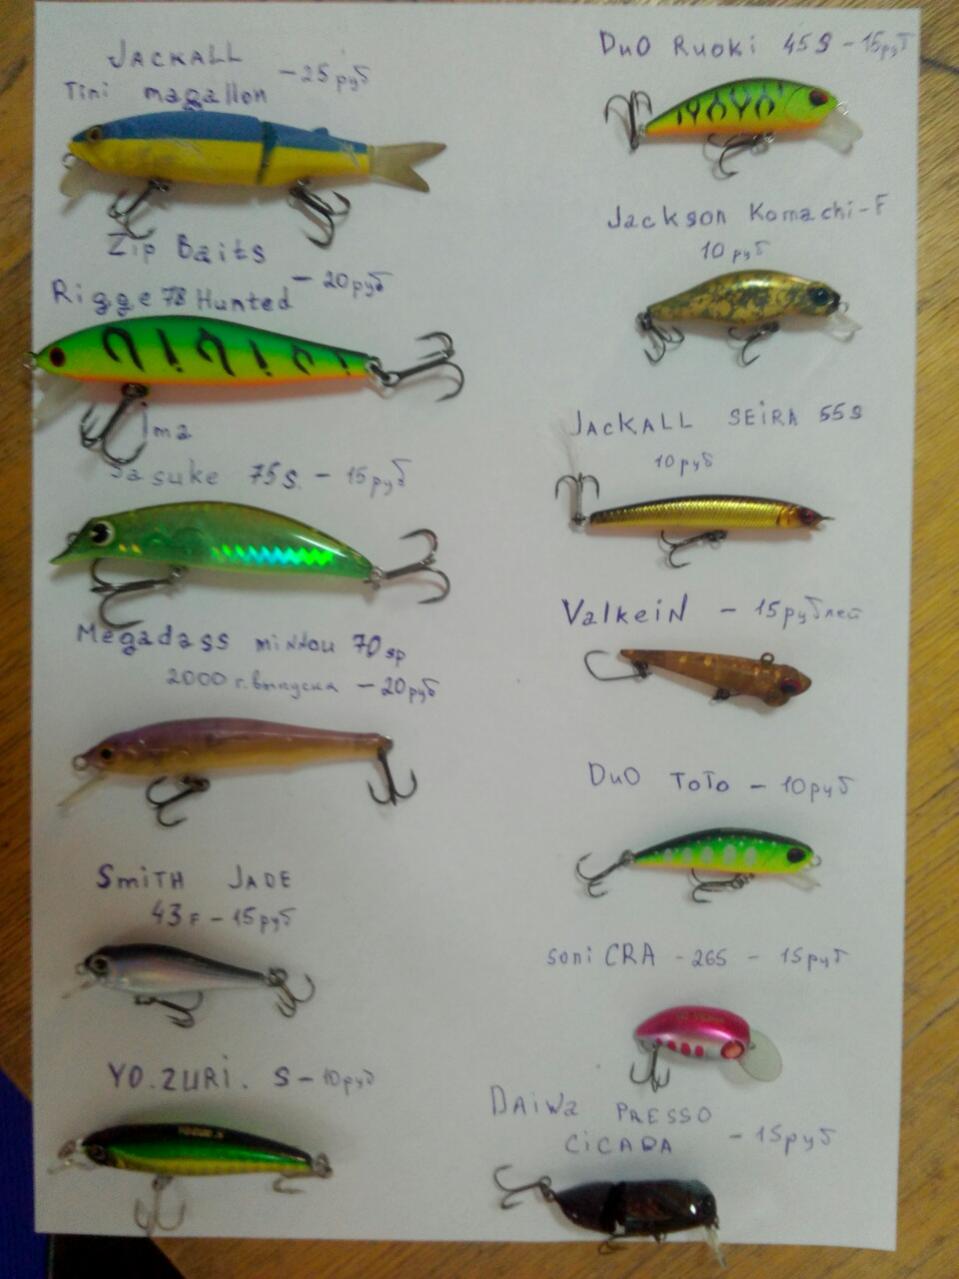 JACKALL
Tini magallon
-25 руб
Zip Baits
- 20 руб
Rigge 78 Hunted
Ima
Sasuke 75 S. - 15 руб
Megabass minnou 70 sp
2000 г. выпуска - 20 руб
SmiTH JADE
43 F - 15 руб
YO.ZURI. S - 10 руб
DuO Ruoki 45 S - 15 руб
Jackson Komachi-F
10 руб
JACKALL SEIRA 55 S
10 руб
ValkeiN - 15 рублей
DuO ToTo - 10 руб
soni CRA - 265 - 15 руб
DAiWa PRESSO
CiCADA
- 15 руб